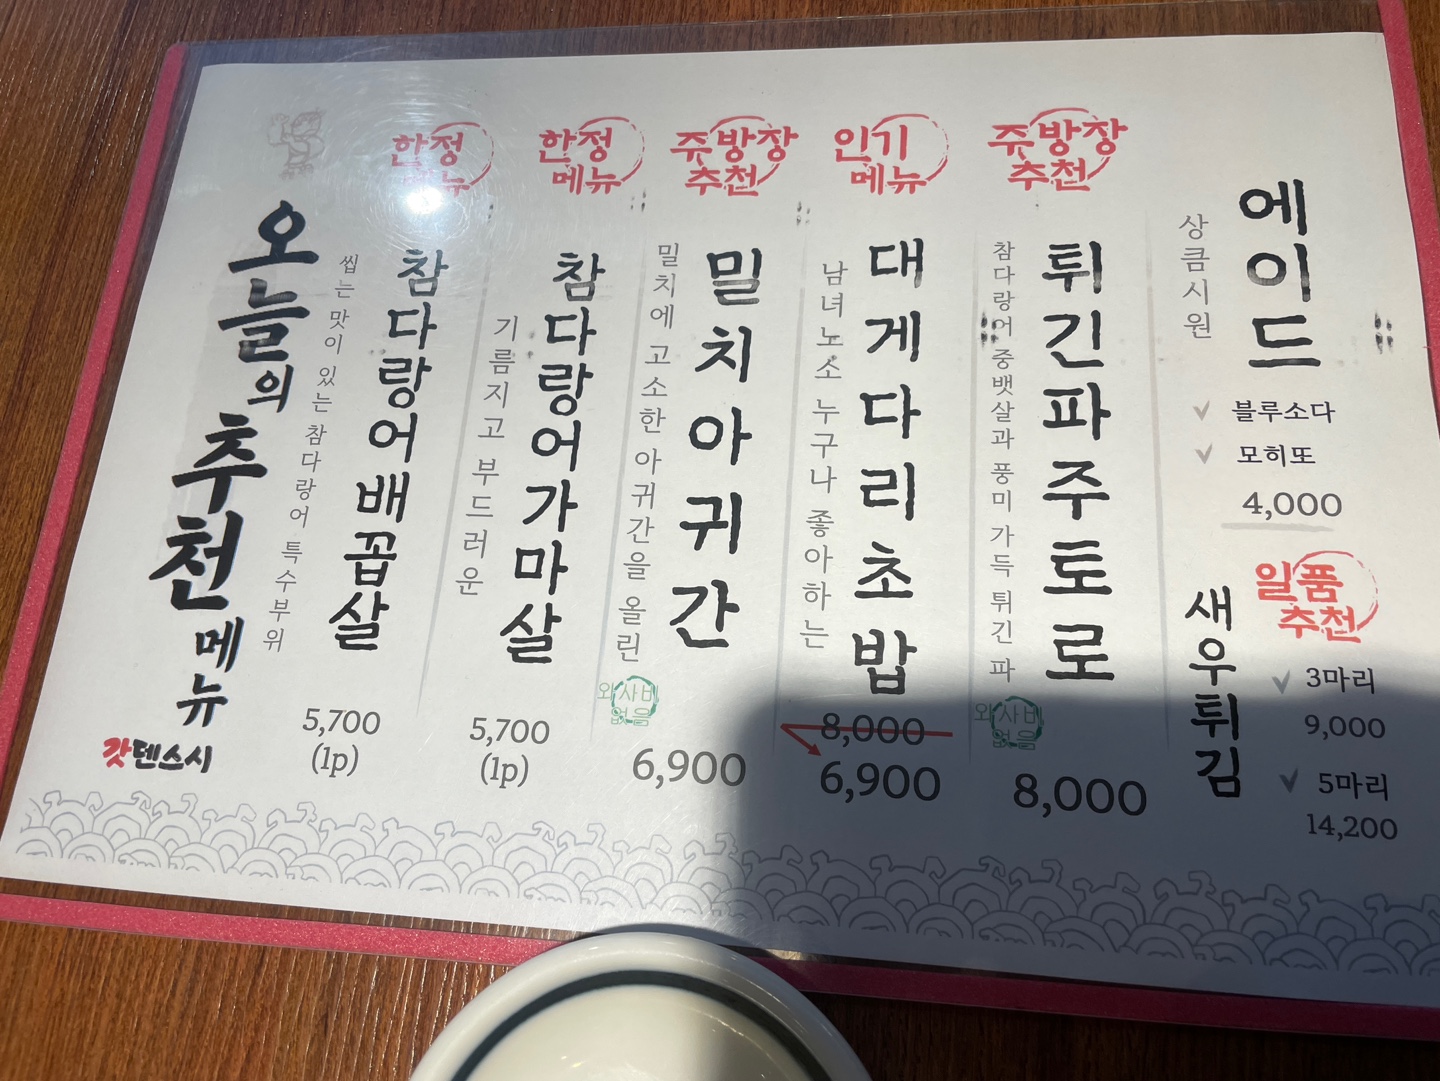 오늘의 추천 메뉴
갓덴스시
한정
메뉴
참다랑어배꼽살
씹는 맛이 있는 참다랑어 특수부위
5,700
(1p)
한정
메뉴
참다랑어가마살
기름지고 부드러운
5,700
(1p)
주방장
추천
밀치아귀간
밀치에 고소한 아귀간을 올린
와사비
없음
6,900
인기
메뉴
대게다리초밥
남녀노소 누구나 좋아하는
8,000
6,900
주방장
추천
튀긴파주토로
참다랑어 중뱃살과 풍미 가득 튀긴 파
와사비
없음
8,000
에이드
상큼시원
블루소다
모히또
4,000
일품
추천
새우튀김
3마리
9,000
5마리
14,200